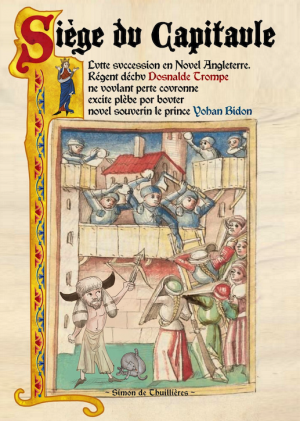 Siège du Capitaule
Lutte svccession en Novel Angleterre.
Régent déchv Dosnalde Trompe
ne voulant perte covronne
excite plèbe por bovter
novel souverin le prince Yohan Bidon
~ Simon de Thuillières ~